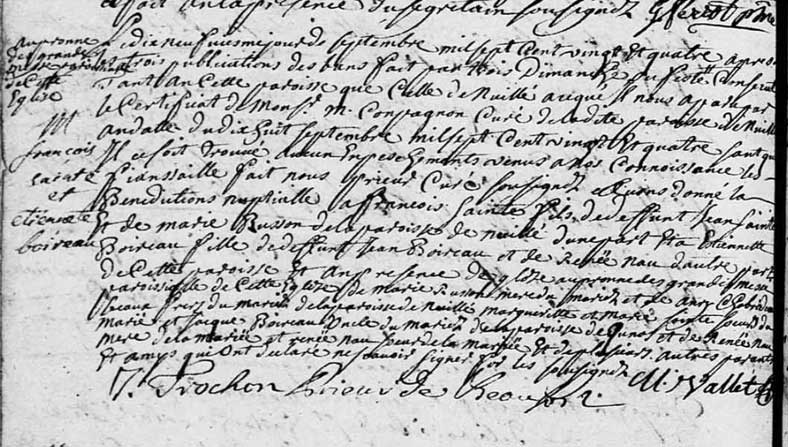 a fait en la presence du segretain sousignez
Le dix neufviesme jour de septembre mil sept cent vingt et quatre apres
trois publications des bans fait par trois Dimanche ou feste Consecutif
Tant en Cette paroisse que Celle de Nuillé a ce que Il nous a paru par
le Certificat de Monsr M. Compagnon Curé de la dite paroisse de Nuillé
en datte du dix huit septembre mil sept Cent vingt Et quatre sant que
M
francois
sainte
et
etiennette
boireau
Il ce soit trouvé aucun Enpeschements venus a nos Connoissance les
fiansaille fait nous prieur Curé sousignez avons donné la
Benedictions nuptialle a francois Sainte fils de deffunt Jean Sainte
Et de marie Busson de la paroisse de nuillé d'une part Et a Etiennette
Boireau fille de deffunt Jean Boireau et de Renée nau d'autre part
de Cette paroisse Et en presence de
au pronne des grande messe
paroissialle de Cette Eglise de marie Busson mere du marié et de
beau frere du marié de la paroisse de nuillé margueritte et marie Sainte soeurs du
marié et Jaque Boireau oncle du marié de la paroisse de et de Renée nau
mere de la mariée et renée nau soeur de la mariée Et de plusieurs autres parents
Et amys qui ont declaré ne scavoir signer fors les sousignez
J. Trochon Prieur de Beaufort. M. Vallet